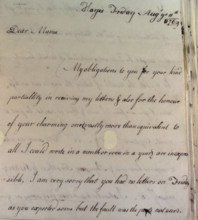 Hayes Friday Aug
Dear Mama
My obligations to you for your kind
partiality in receiving my letters & also for the honour
of your charming are exactly more than equivalent to
all I could write in a month or even in a year; an
I am very sorry that you had no letters on
as you expected some but the fault was the post not mine